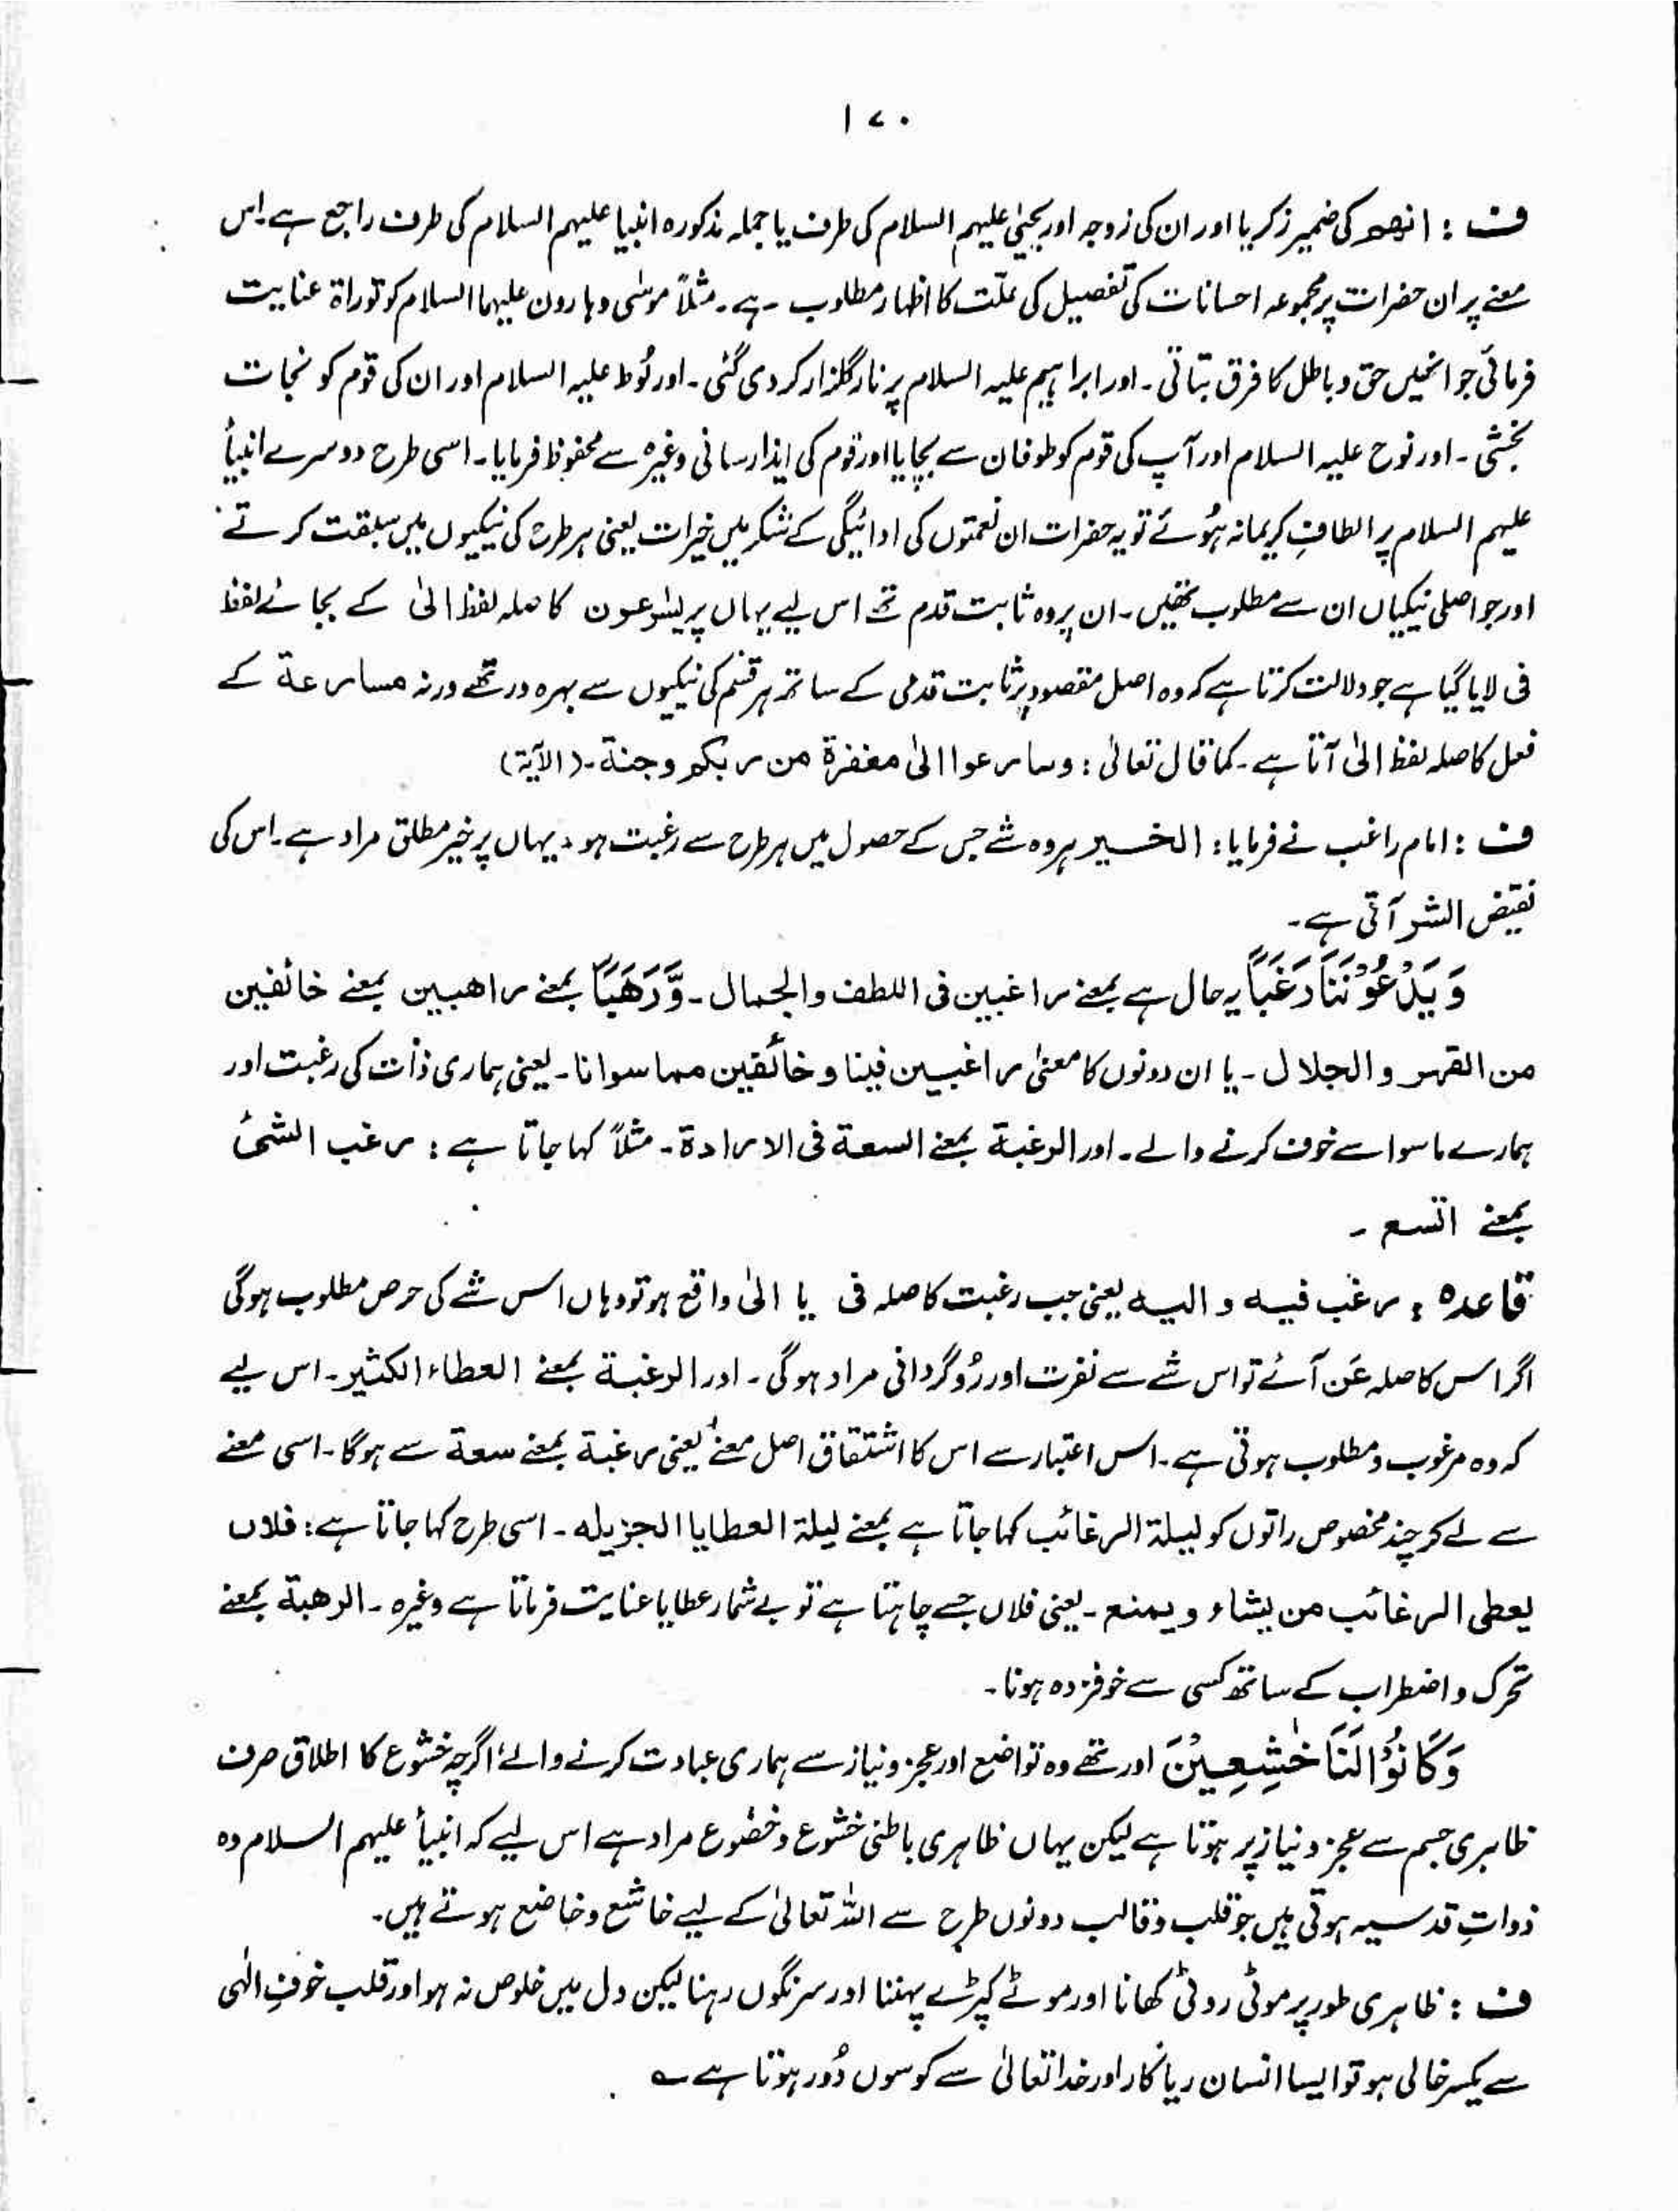 ۱۷۰
ف : انھم کی ضمیر زکریا اور ان کی زوجہ اور یحییٰ علیہم السلام کی طرف یا جملہ مذکورہ انبیا علیہم السلام کی طرف راجع ہے۔ اس
معنے پر ان حضرات پر مجموعہ احسانات کی تفصیل کی علّت کا اظہار مطلوب ہے۔ مثلاً موسٰی و ہارون علیہما السلام کو توراۃ عنایت
فرمائی جو انھیں حق و باطل کا فرق بتاتی۔ اور ابراہیم علیہ السلام پر نار گلزار کر دی گئی۔ اور لُوط علیہ السلام اور ان کی قوم کو نجات
بخشی۔ اور نوح علیہ السلام اور آپ کی قوم کو طوفان سے بچایا اور قوم کی ایذا رسانی وغیرہ سے محفوظ فرمایا۔ اسی طرح دوسرے انبیأ
علیہم السلام پر الطافِ کریمانہ ہُوئے تو یہ حضرات ان نعمتوں کی ادائیگی کے شکر میں خیرات یعنی ہر طرح کی نیکیوں میں سبقت کرتے
اور جو اصلی نیکیاں ان سے مطلوب تھیں۔ ان پر وہ ثابت قدم تھے اس لیے یہاں پر یسٰرعون کا صلہ لفظ الیٰ کے بجائے لفظ
فی لایا گیا ہے جو دلالت کرتا ہے کہ وہ اصل مقصود پر ثابت قدمی کے ساتھ ہر قسم کی نیکیوں سے بہرہ ور تھے ورنہ مسارعة کے
فعل کا صلہ لفظ الیٰ آتا ہے۔ کما قال تعالیٰ : وسارعوا الیٰ مغفرة من ربکم وجنة۔ (الآیۃ)
ف : امام راغب نے فرمایا : الخـیر ہر وہ شے جس کے حصول میں ہر طرح سے رغبت ہو۔ یہاں پر خیر مطلق مراد ہے۔ اس کی
نقیض الشر آتی ہے۔
وَیَدْعُوْنَنَا رَغَبًا یہ حال ہے بمعنے راغبین فی اللطف والجمال۔ وَّرَهَبًا بمعنے راھبین بمعنے خائفین
من القھر والجلال۔ یا ان دونوں کا معنیٰ راغبین فینا و خائفین مما سوانا۔ یعنی ہماری ذات کی رغبت اور
ہمارے ماسوا سے خوف کرنے والے۔ اور الرغبة بمعنے السعة فی الارادة۔ مثلاً کہا جاتا ہے : رغب الشئ
بمعنے اتسع۔
قاعدہ : رغب فیه و الیه یعنی جب رغبت کا صلہ فی یا الیٰ واقع ہو تو وہاں اس شے کی حرص مطلوب ہوگی
اگر اس کا صلہ عَن آئے تو اس شے سے نفرت اور رُوگردانی مراد ہوگی۔ اور الرغبة بمعنے العطاء الکثیر۔ اس لیے
کہ وہ مرغوب و مطلوب ہوتی ہے۔ اس اعتبار سے اس کا اشتقاق اصل معنے یعنی رغبة بمعنے سعة سے ہوگا۔ اسی معنے
سے لے کر چند مخصوص راتوں کو لیلة الرغائب کہا جاتا ہے بمعنے لیلة العطایا الجزیله۔ اسی طرح کہا جاتا ہے : فلان
یعطی الرغائب من یشاء و یمنع۔ یعنی فلاں جسے چاہتا ہے تو بے شمار عطایا عنایت فرماتا ہے وغیرہ۔ الرھبة بمعنے
تحرک و اضطراب کے ساتھ کسی سے خوفزدہ ہونا۔
وَكَانُوْا لَنَا خٰشِعِیْنَ اور تھے وہ تواضع اور عجز و نیاز سے ہماری عبادت کرنے والے، اگرچہ خشوع کا اطلاق صرف
ظاہری جسم سے عجز و نیاز پر ہوتا ہے لیکن یہاں ظاہری باطنی خشوع و خضوع مراد ہے اس لیے کہ انبیأ علیہم السلام وہ
ذواتِ قدسیہ ہوتی ہیں جو قلب و قالب دونوں طرح سے اللہ تعالیٰ کے لیے خاشع و خاضع ہوتے ہیں۔
ف : ظاہری طور پر موٹی روٹی کھانا اور موٹے کپڑے پہننا اور سرنگوں رہنا لیکن دل میں خلوص نہ ہو اور قلب خوفِ الٰہی
سے یکسر خالی ہو تو ایسا انسان ریاکار اور خدا تعالیٰ سے کوسوں دُور ہوتا ہے ؎